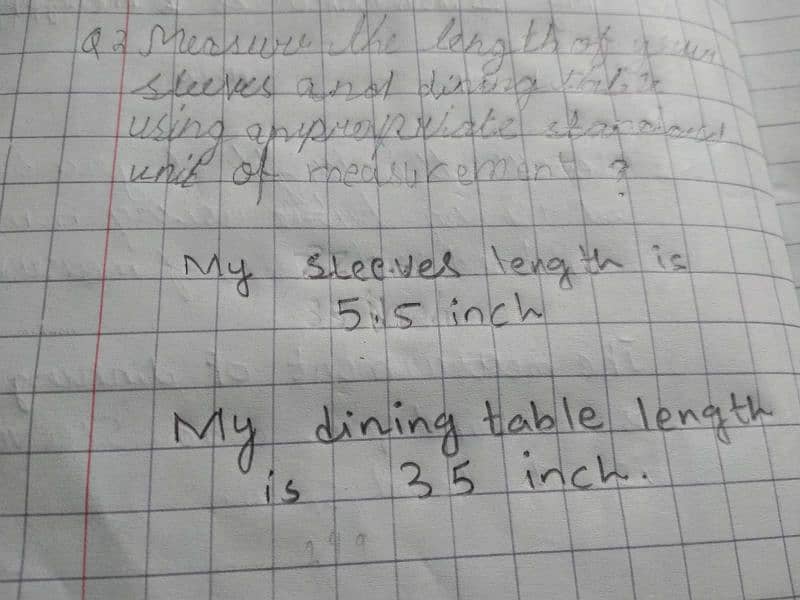 Q2 Measure the length of your
sleeves and dining table
using appropriate standard
unit of measurement ?
My sleeves length is
5.5 inch
My dining table length
is 35 inch.